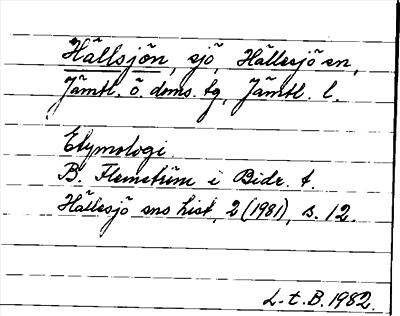 Hällsjön, sjö, Hällesjö sn,
Jämtl. ö. doms. tg, Jämtl. l.
Etymologi.
B. Flemström i Bidr. t.
Hällesjö sns hist, 2 (1981), s. 12.
L-t. B. 1982.